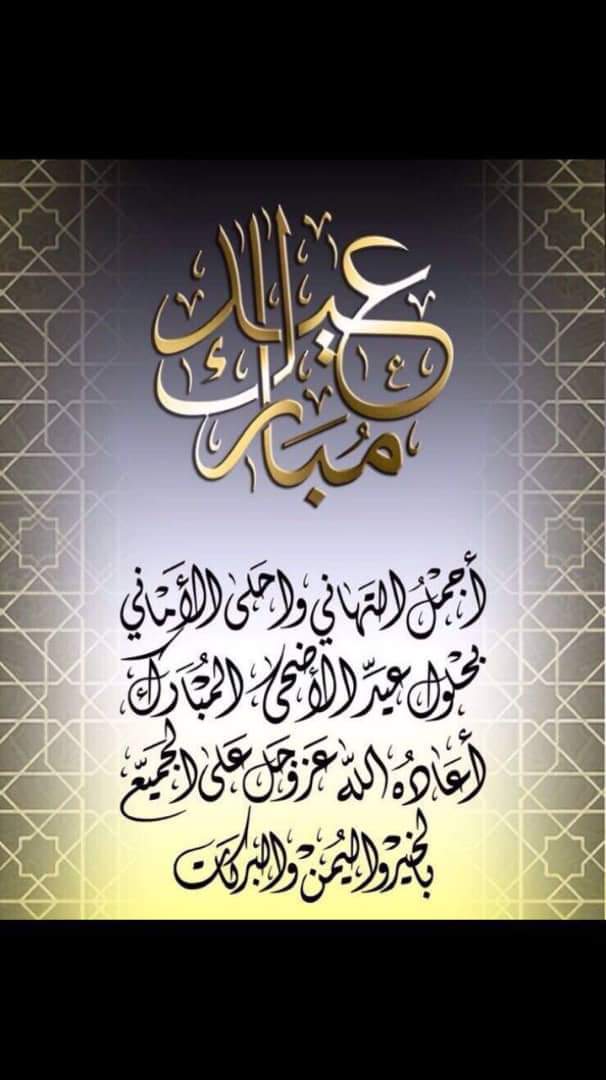 عيد
مُبَارك
أجمْلُ التهَاني واحلى الأمَاني
بحْلول عيدّ الأضحى المبُارَك
أعَادهُ الله عَزوجَل عَلى الجميَع
بالخيرْ واليُمنْ والبركات